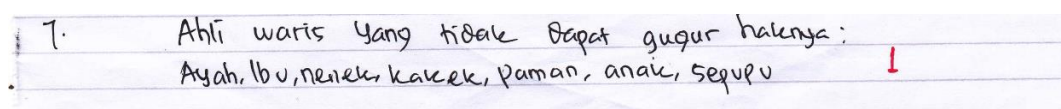 7. Ahli waris yang tidak dapat gugur haknya:
Ayah, Ibu, nenek, kakek, paman, anak, sepupu 1